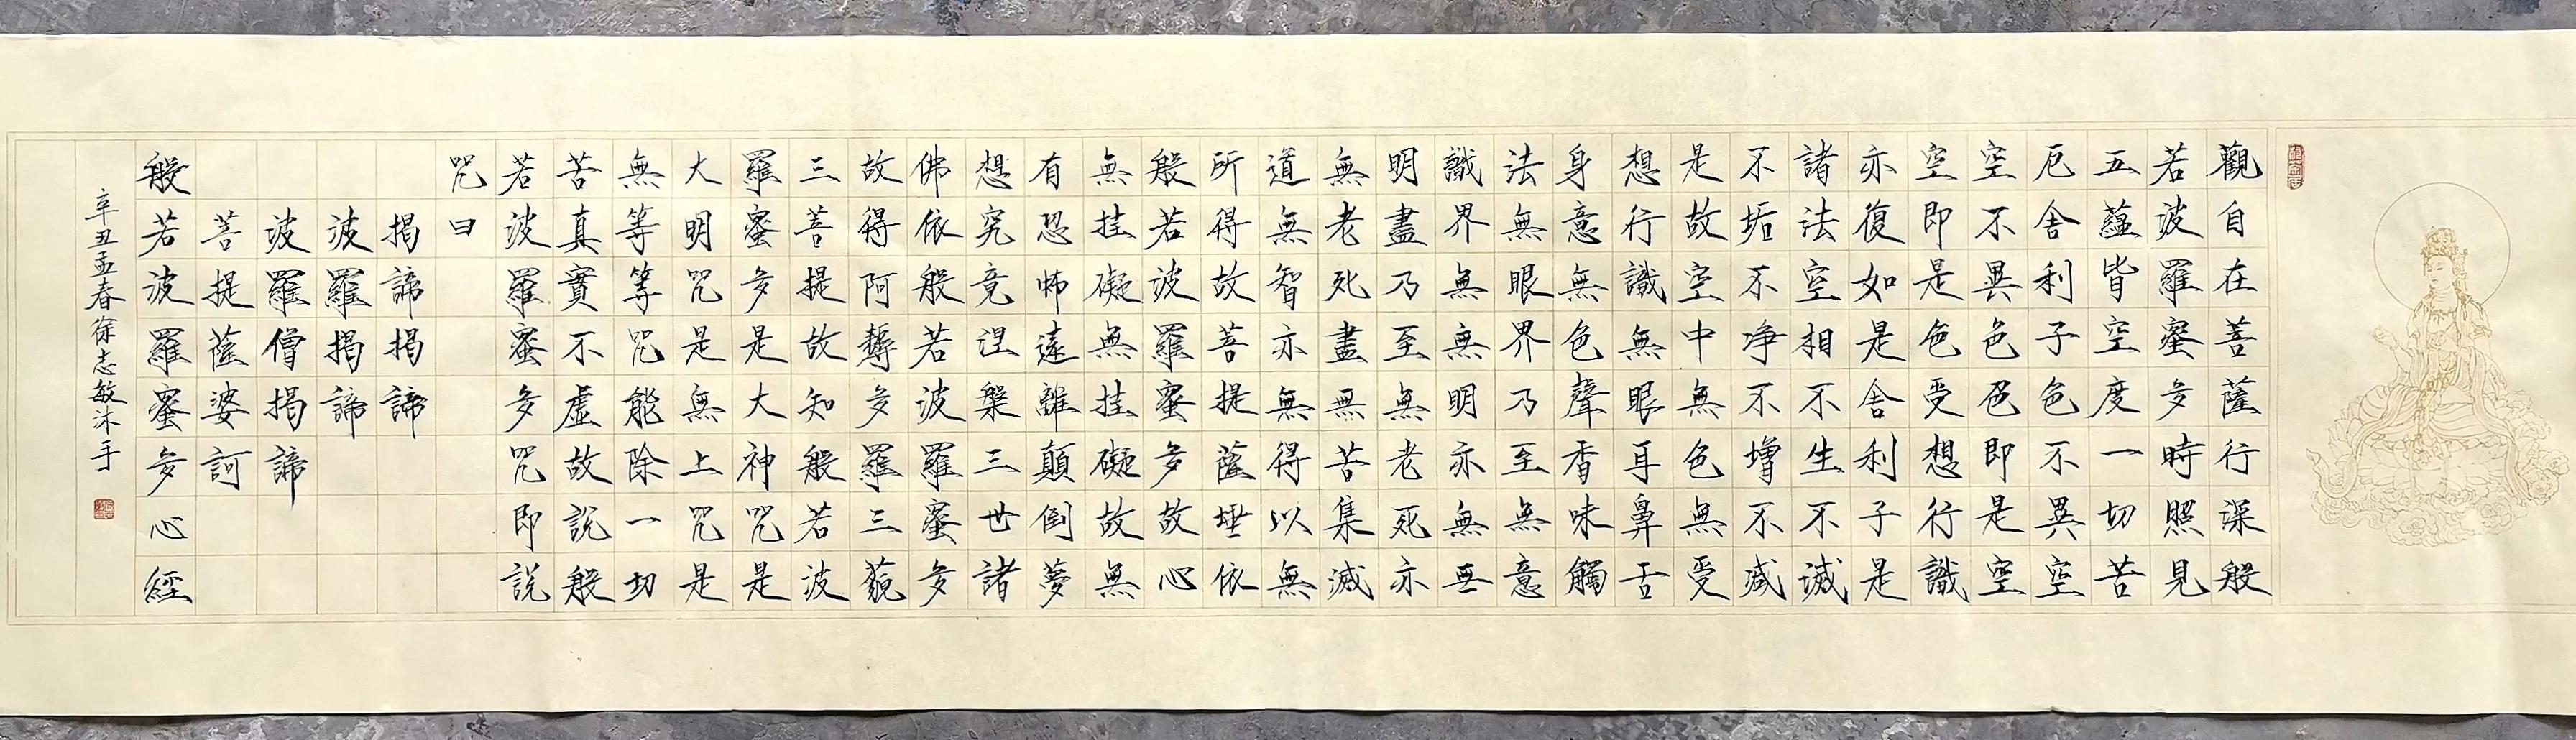 觀自在菩薩行深般
若波羅蜜多時照見
五蘊皆空度一切苦
厄舍利子色不異空
空不異色色即是空
空即是色受想行識
亦復如是舍利子是
諸法空相不生不滅
不垢不净不增不減
是故空中無色無受
想行識無眼耳鼻舌
身意無色聲香味觸
法無眼界乃至無意
識界無無明亦無無
明盡乃至無老死亦
無老死盡無苦集滅
道無智亦無得以無
所得故菩提薩埵依
般若波羅蜜多故心
無挂礙無挂礙故無
有恐怖遠離顛倒夢
想究竟涅槃三世諸
佛依般若波羅蜜多
故得阿耨多羅三藐
三菩提故知般若波
羅蜜多是大神咒是
大明咒是無上咒是
無等等咒能除一切
苦真實不虛故說般
若波羅蜜多咒即説
咒曰
揭諦揭諦
波羅揭諦
波羅僧揭諦
菩提薩婆訶
般若波羅蜜多心經
辛丑孟春徐志敏沐手